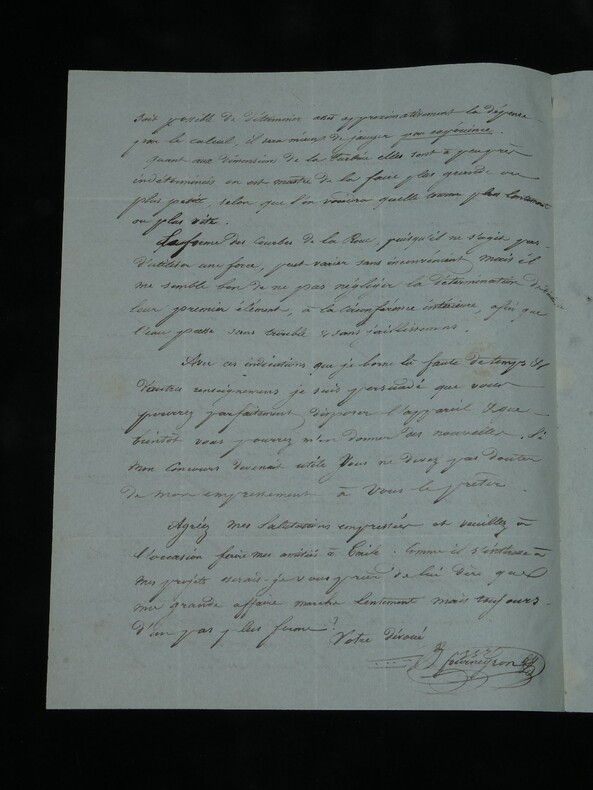 soit possible de déterminer assez approximativement la dépense
par le calcul, il sera mieux de jauger par expérience.
Quant aux dimensions de la Turbine elles sont à peu près
indéterminées on est maître de la faire plus grande ou
plus petite selon que l'on voudra quelle tourne plus lentement
ou plus vite.
La forme des Courbes de la Roue, puisqu'il ne s'agit pas
d'utiliser une force, peut varier sans inconvénient mais il
me semble bon de ne pas négliger la détermination de
leur premier élément, à la circonférence intérieure, afin que
l'eau passe sans trouble & sans
Avec ces indications que je borne là faute de temps &
d'autres renseignemens je suis persuadé que vous
pourrez parfaitement disposer l'appareil & que
bientôt vous pourrez m'en donner des nouvelles. Si
mon concours devenait utile Vous ne devez pas douter
de mon empressement à vous le prêter.
Agréez mes Salutations empressées et veuillez à
l'occasion faire mes amitiés à Emile : Comme il s'intéresse à
mes projets oserais-je vous prier de lui dire que
ma grande affaire marche lentement mais toujours
d'un pas plus ferme!
Votre dévoué
Fourneyron